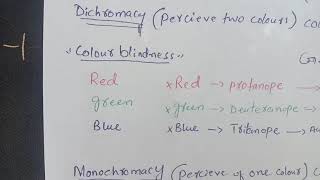 Dichromacy (percieve two colours)
Colour blindness
(Gr.
Red ×Red → protanope →
Green ×green → Deuteranope →
Blue ×Blue → Tritanope →
Monochromacy (percieve of one colour)